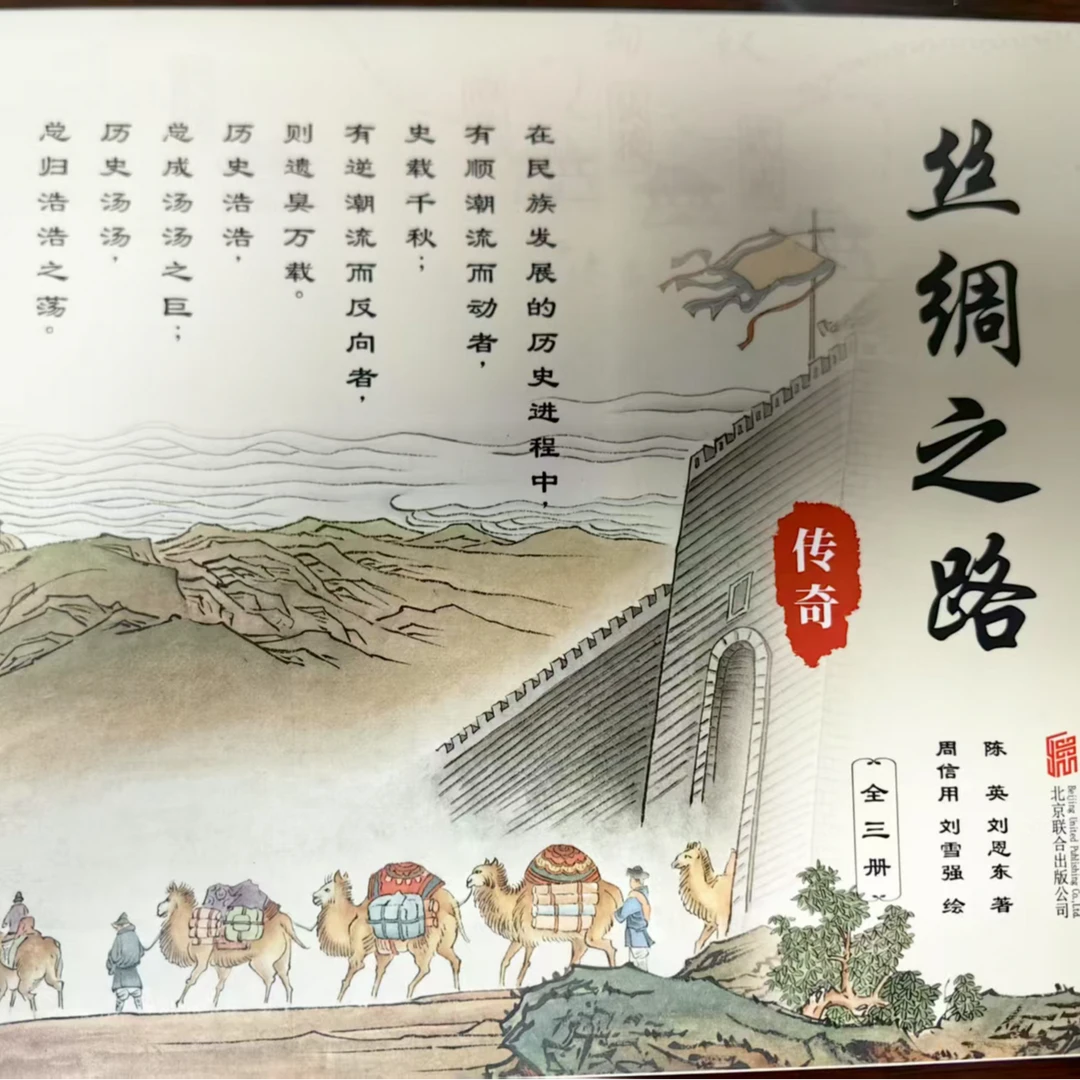 丝绸之路
传奇
陈英 刘恩东 著
周信用 刘雪强 绘
全三册
Beijing United Publishing Co.,Ltd.
北京联合出版公司
在民族发展的历史进程中，
有顺潮流而动者，
史载千秋；
有逆潮流而反向者，
则遗臭万载。
历史浩浩，
总成汤汤之巨；
历史汤汤，
总归浩浩之荡。